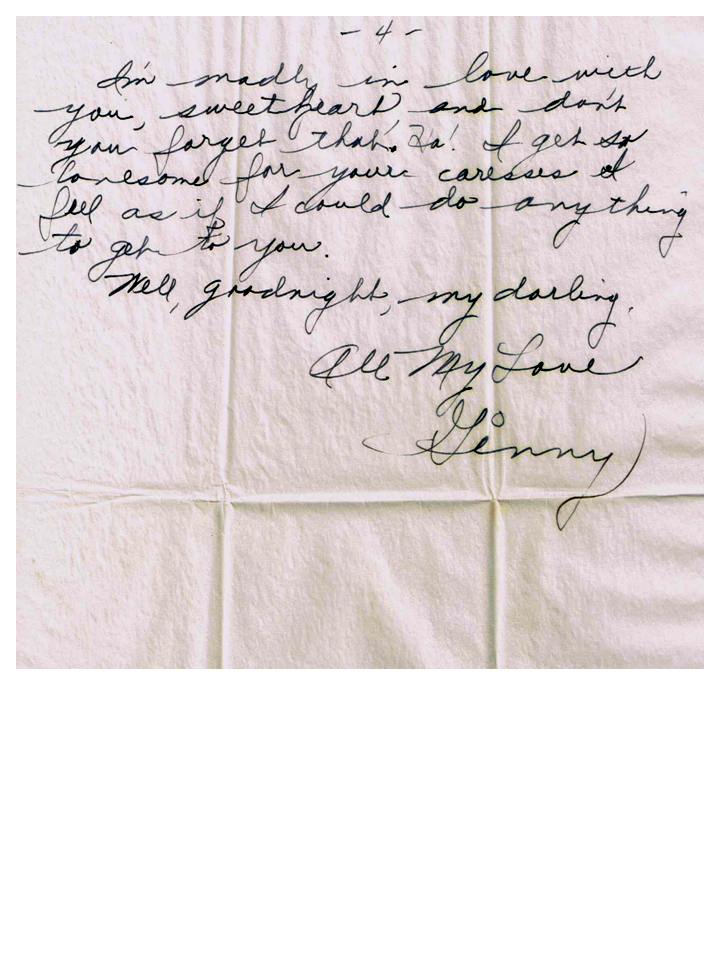 - 4 -
I'm madly in love with
you, sweetheart, and don't
you forget that. Ha! I get so
lonesome for your caresses I
feel as if I could do anything
to get to you.
Well, goodnight, my darling.
All My Love
Ginny